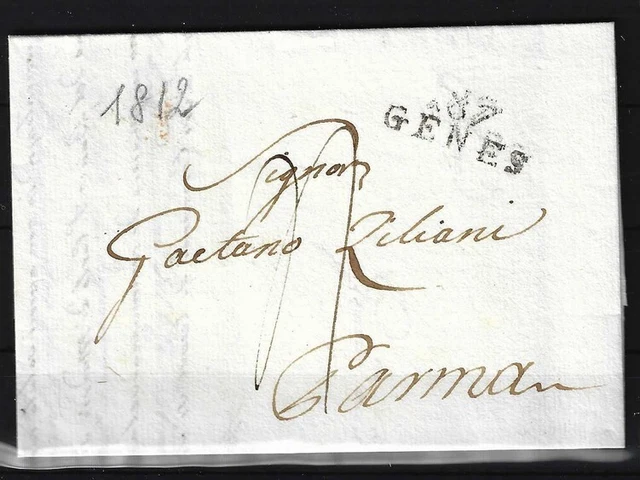 1812
87
GENES
Signor
Gaetano Ziliani
Parma